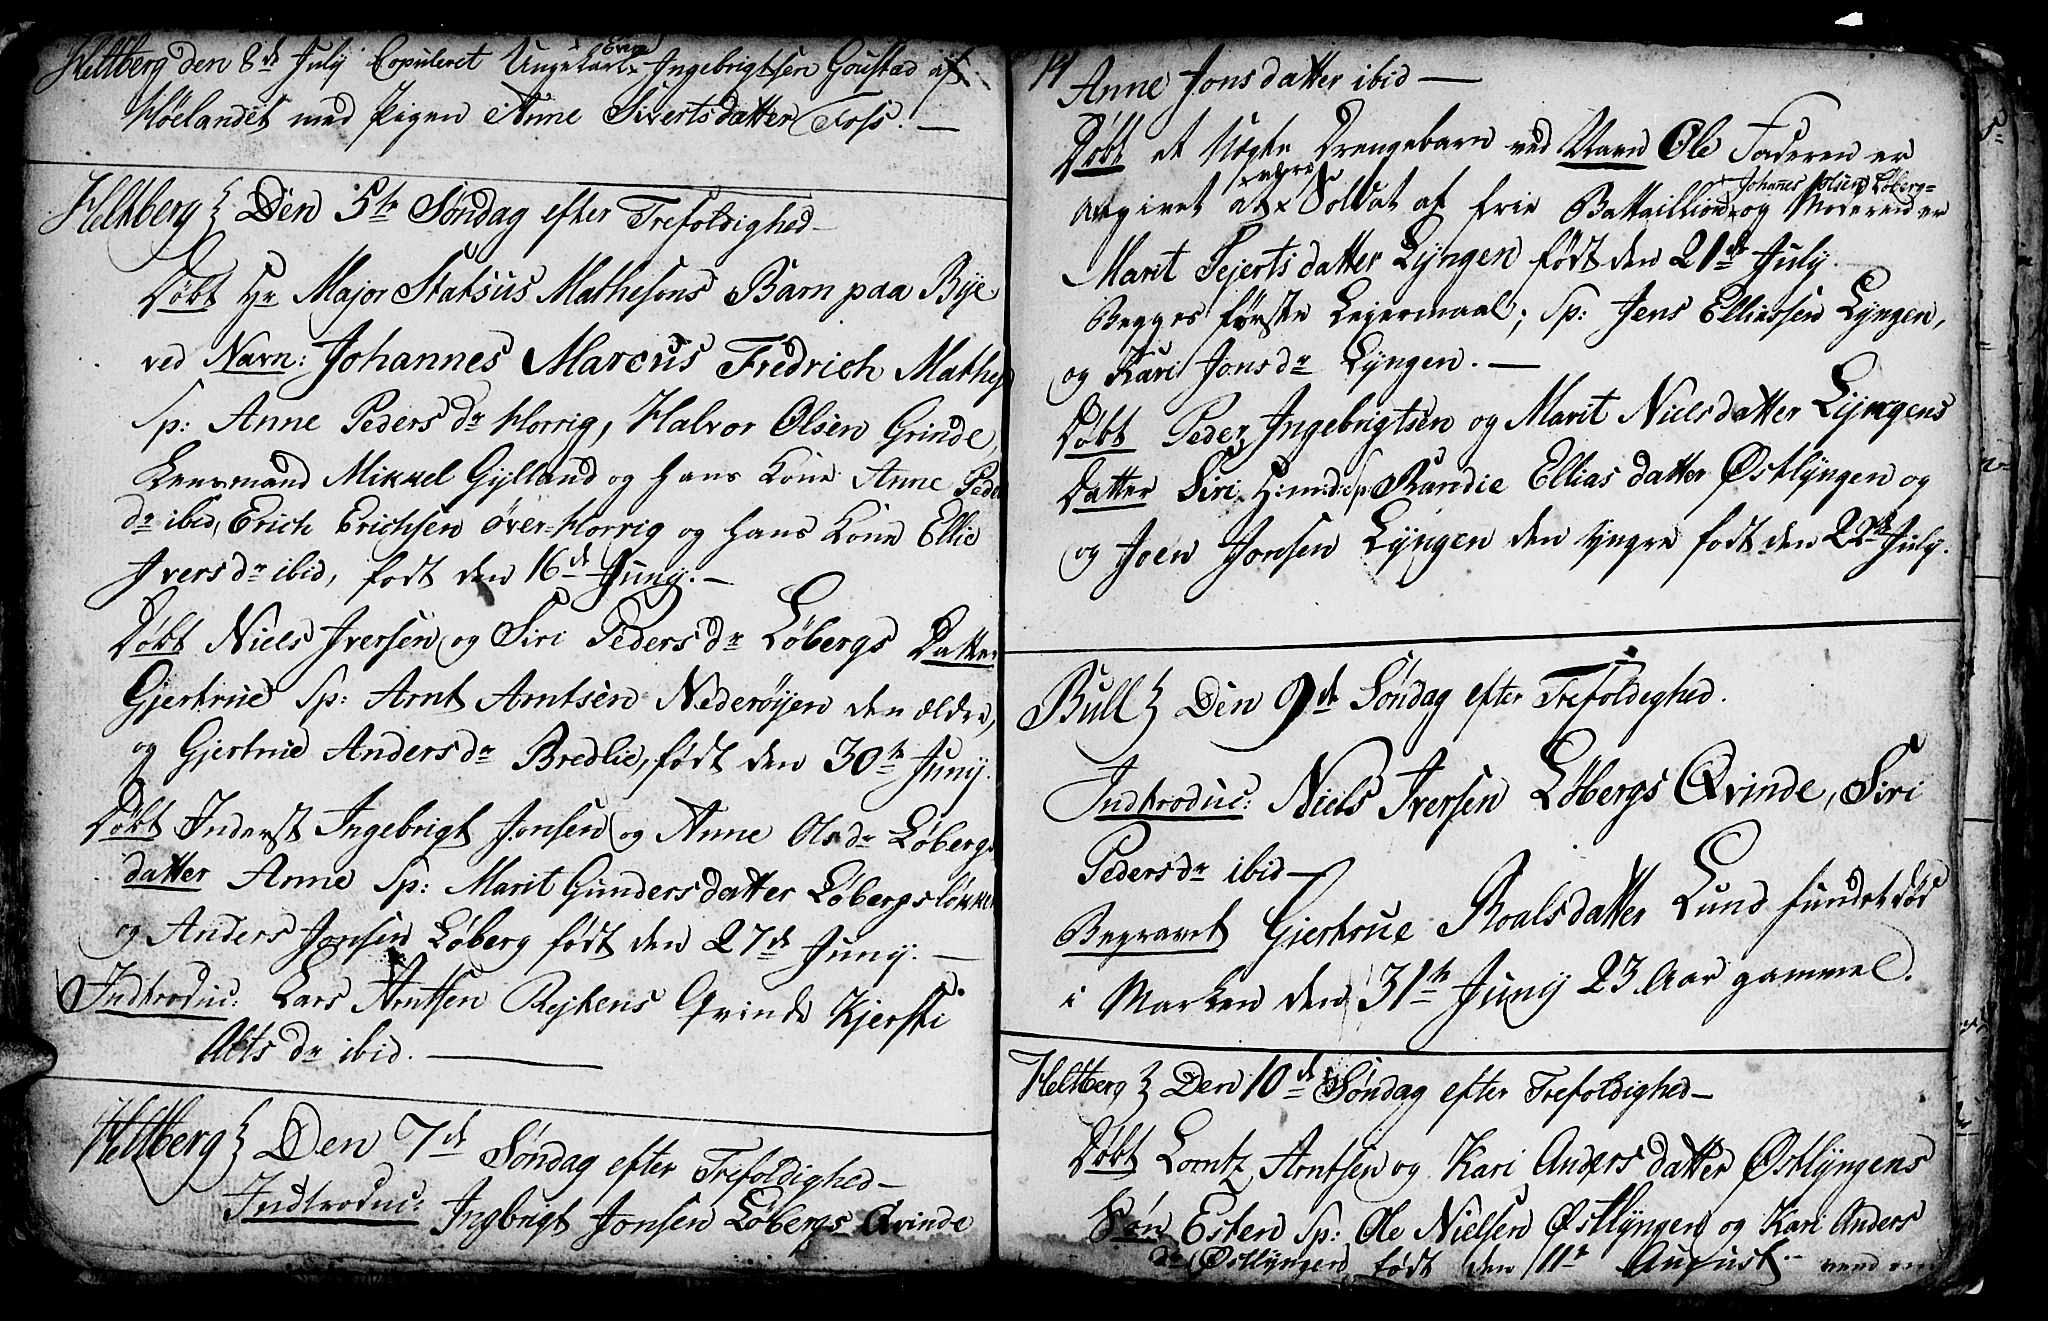 Heltberg den 8de July Copuleret Ungekarl Even Ingebrigtsen Goustad af
Høelandet med Pigen Anne Sivertsdatter Foss. —
Heltberg Den 5te Søndag efter Trefoldighed —
Døbt Hr Major Statsus Mathesons Barn paa Bye
ved Navn: Johannes Marcus Fredrich Mathes
Sp: Anne Peders dr Horrig, Halvor Olsen Grinde
Lensmand Mikkel Gylland og hans Kone Anne Peder
dr ibid, Erich Erichsen Över-Horrig og hans Kone Ellie
Ivers dr ibid, født den 16de Juny. —
Døbt Niels Iversen og Siri Peders dr Løbergs Datter
Gjertrue Sp: Arnt Arntsen Nederøyen den ældre,
og Gjertrue Anders dr Bredlie, født den 30te Juny.
Døbt Inderst Ingebrigt Jonsen og Anne Ols dr Løbergs
datter Anne Sp: Marit Gundersdatter Løbergsløkken
og Anders Jonsen Løberg født den 27de Juny. —
Indtroduc: Lars Arntsen Rejtens Qvinde Kjersti
Alts dr ibid. —
Heltberg Den 7de Søndag efter Trefoldighed —
Indtroduc: Ingbrigt Jonsen Løbergs Qvinde
14
Anne Jonsdatter ibid —
Døbt et Uægte Drengebarn ved Navn Ole Faderen er
angivet at være Soldat af frie Battaillion Johanes Olsen Løberg og Moderen er
Marit Sejertsdatter Lyngen født den 21de July.
Begges første Lejermaal; Sp: Jens Elliassen Lyngen,
og Kari Jons dr Lyngen. —
Døbt Peder Ingebrigtsen og Marit Nielsdatter Lyngens
Datter Siri, H: m: d: Sp: Randie Elliasdatter Østlyngen og
og Joen Jonsen Lyngen den yngre født den 22de July.
Bull Den 9de Søndag efter Trefoldighed.
Indtroduc: Niels Iversen Løbergs Qvinde, Siri
Peders dr ibid —
Begravet Gjertrue Roalsdatter Lund fundet død
i Marken den 31te Juny 23 Aar gammel.
Heltberg Den 10de Søndag efter Trefoldighed —
Døbt Lorntz Arntsen og Kari Andersdatter Østlyngens
Søn Esten Sp: Ole Nielsen Østlyngen og Kari Anders
dr Østlyngen født den 11te August